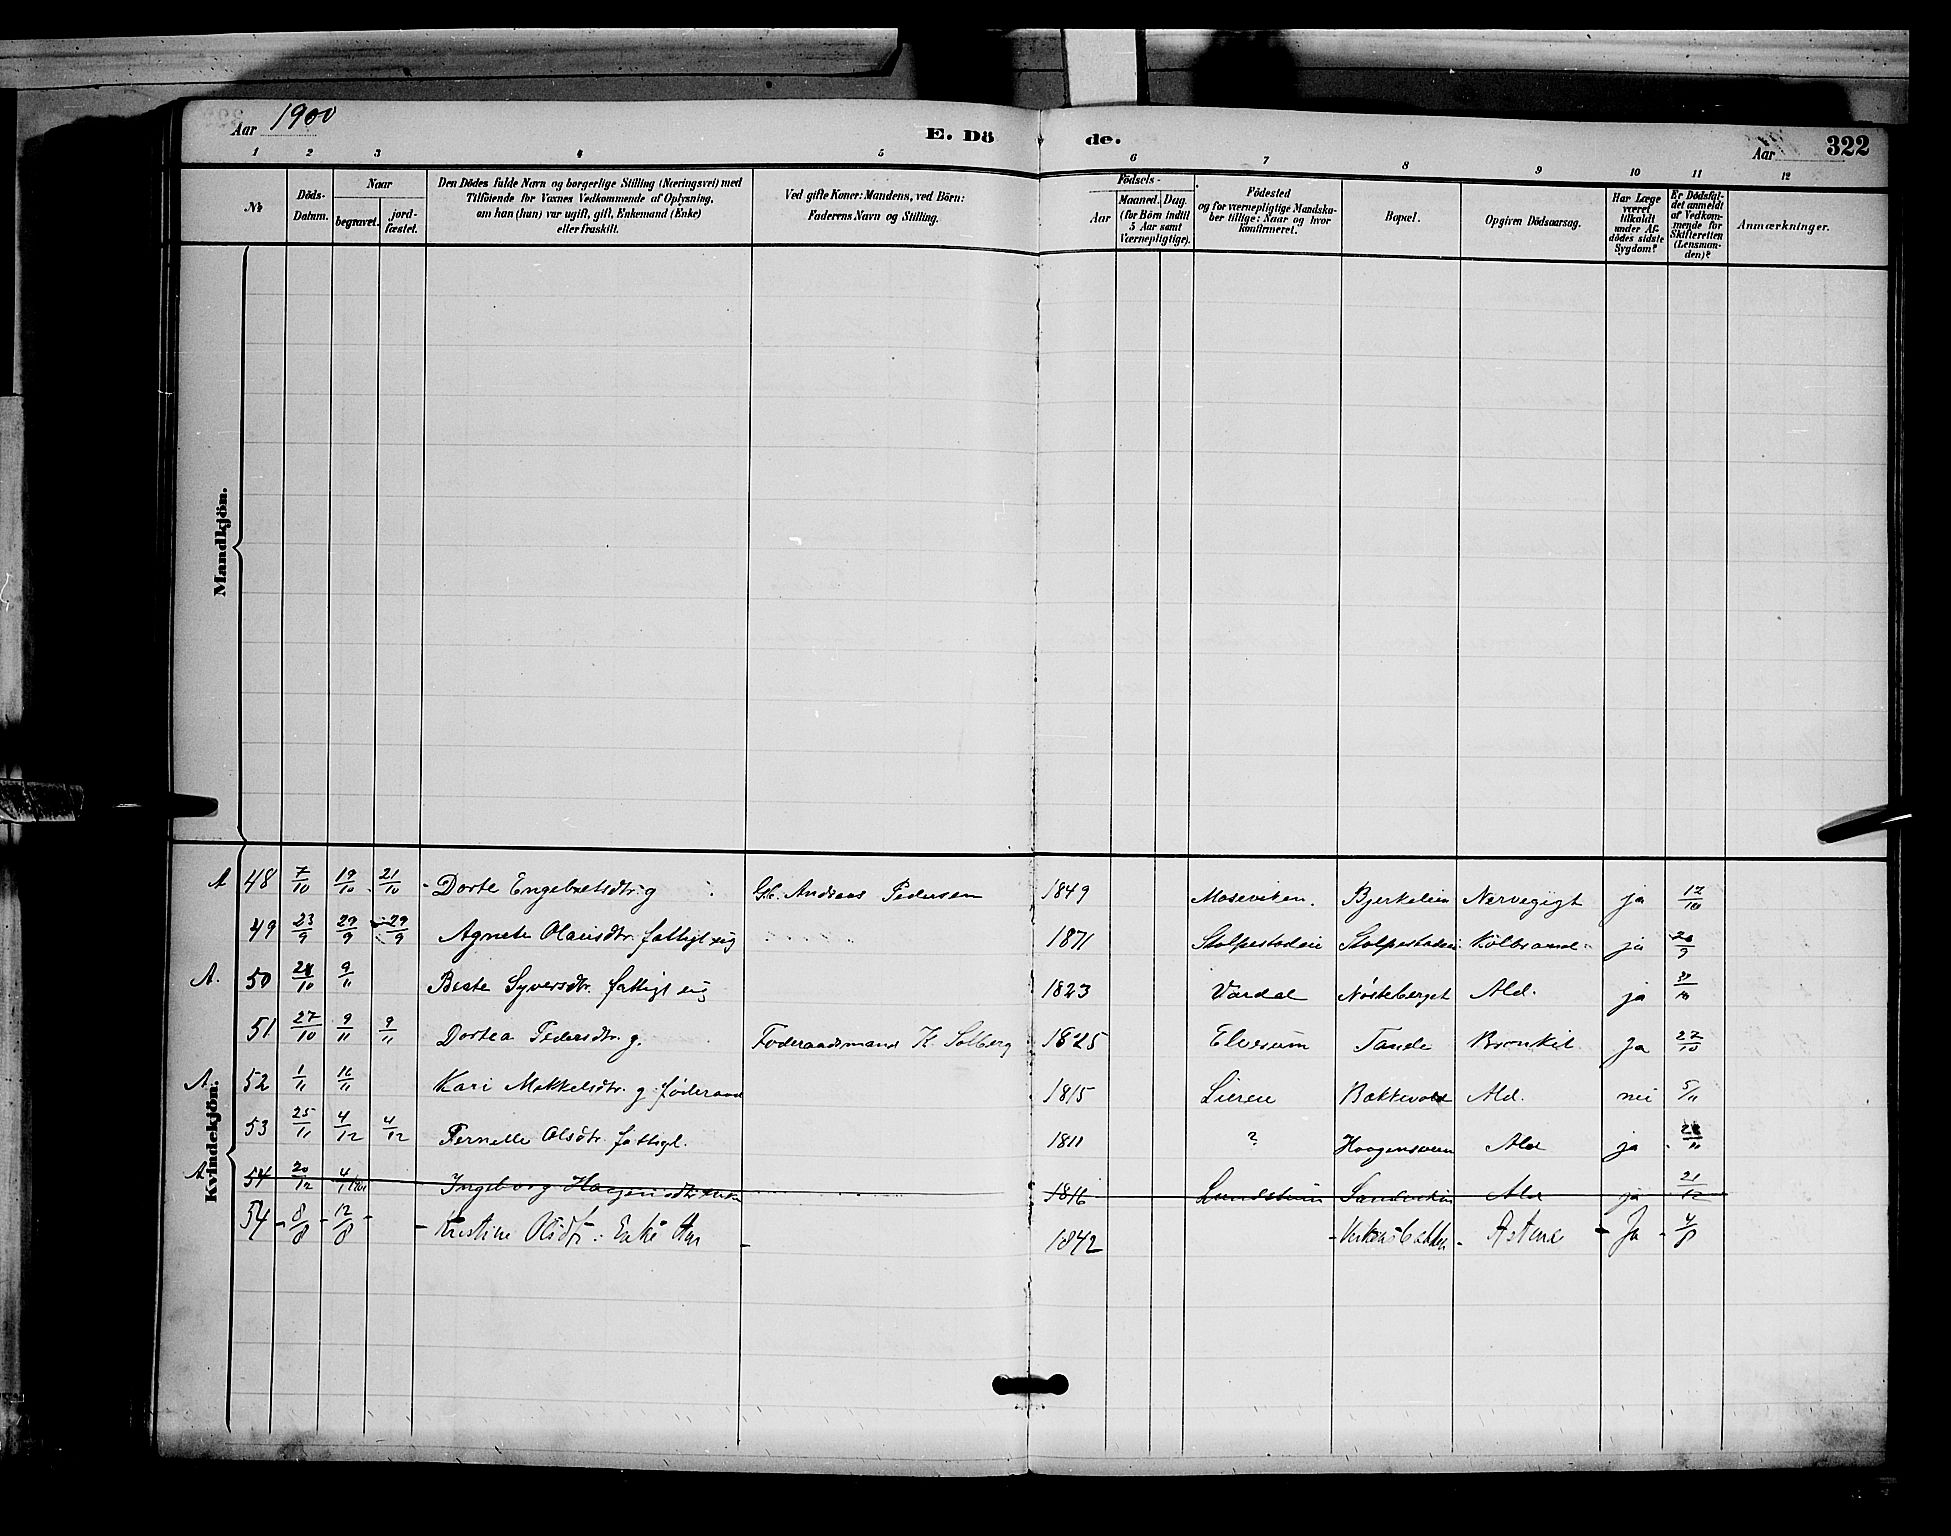 Aar 1900 E. Dö de. Aar 322
1 2 3 4 5 6 7 8 9 10 11 12
№
Döds-Datum.
Naar
begravet.
jord-fæstet.
Den Dödes fulde Navn og borgerlige Stilling (Næringsvei) med
Tilföiende for Voxnes Vedkommende af Oplysning,
om han (hun) var ugift, gift, Enkemand (Enke)
eller fraskilt.
Ved gifte Koner: Mandens, ved Börn:
Faderens Navn og Stilling.
Födsels-
Aar
Maaned. Dag.
(for Börn indtil
5 Aar samt
Værnepligtige).
Födested
og for værnepligtige Mandska-
ber tillige: Naar og hvor
konfirmeret.
Bopæl.
Opgiven Dödsaarsag.
Har Læge
været
tilkaldt
under Af-
dödes sidste
Sygdom?
Er Dödsfal-
det anmeldt
af Vedkom-
mende for
Skifteretten
(Lensman-
den)?
Anmærkninger.
Mandkjön.
Kvindekjön.
A 48 7/10 19/10 21/10 Dorte Engebretsdtr. g Andreas Pedersen 1849 Moseviken. Bjerkelien Nervegigt ja 12/10
49 23/9 29/9 29/9 Agnete Olausdtr. fattigl. ug 1871 Stolpestadeie Stolpestadeie Kolbrand ja 26/9
A. 50 /10 9/11 Beate Syversdtr. fattigl. ug 1823 Vardal Nösteberget Ald. ja
51 27/10 9/11 9/11 Dortea Pedersdtr. g. Föderaadsmand K. Solberg 1825 Elverum Tande Bronkit. Ja 27/10
A. 52 1/11 16/11 Kari Mikkelsdtr. g. föderaad 1815 Liereie Bakkevold Ald. nei 5/11
53 25/11 4/12 4/12 Pernelle Olsdtr. fattigl. 1811 ? Haagensveen Ald ja
A 54 20/12 Ingeborg Haagensdtr. enke 1816 Lundsteen Sandviken Ald ja 21/12
54 - 8/8 - 12/8 - - Kristine Olsdtr. Enke - 1842 - - Astma - Ja - 4/8